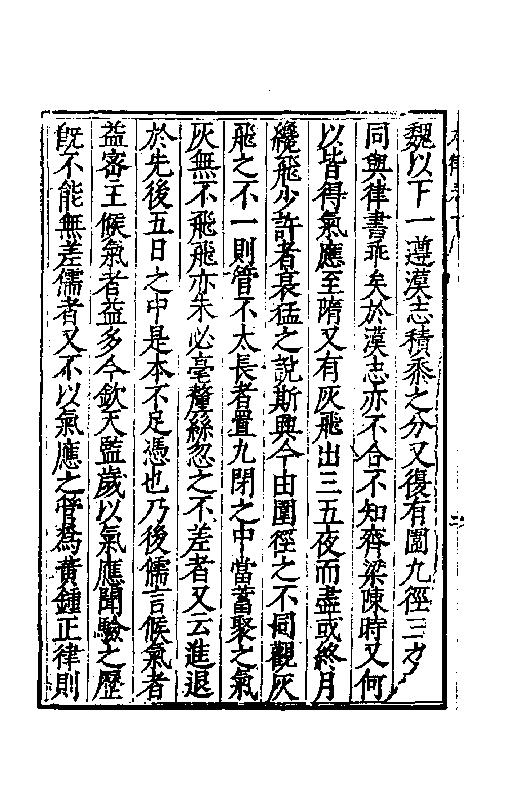 魏以下一遵漢志積黍之分又復有圍九徑三之
同與律書乖矣於漢志亦不合不知齊梁陳時又何
以皆得氣應至隋又有灰飛出三五夜而盡或終月
纔飛少許者衰猛之說斯興今由圍徑之不同觀灰
飛之不一則管不太長者置九閉之中當蓄聚之氣
灰無不飛飛亦未必毫釐絲忽之不差者又云進退
於先後五日之中是本不足憑也乃後儒言候氣者
益密王候氣者益多今欽天監歲以氣應聞驗之歷
既不能無差儒者又不以氣應之管為黃鍾正律則